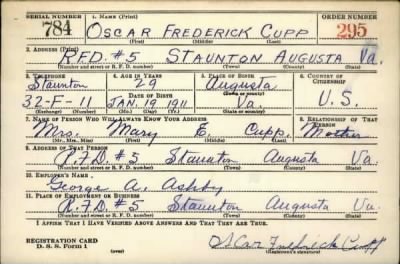 SERIAL NUMBER 1. NAME (Print) ORDER NUMBER
784 OSCAR FREDERICK CUPP 295
(First) (Middle) (Last)
2. ADDRESS (Print)
R.F.D. #5 STAUNTON AUGUSTA Va.
(Number and street or R. F. D. number) (Town) (County) (State)
3. TELEPHONE 4. AGE IN YEARS 5. PLACE OF BIRTH 6. COUNTRY OF CITIZENSHIP
Staunton 29 Augusta
DATE OF BIRTH (Town or county)
32-F-11 JAN. 19 1911 Va. U.S.
(Exchange) (Number) (Mo.) (Day) (Yr.) (State or country)
7. NAME OF PERSON WHO WILL ALWAYS KNOW YOUR ADDRESS 8. RELATIONSHIP OF THAT PERSON
Mrs. Mary E. Cupp Mother
(Mr., Mrs., Miss) (First) (Middle) (Last)
9. ADDRESS OF THAT PERSON
R.F.D. #5 Staunton Augusta Va.
(Number and street or R. F. D. number) (Town) (County) (State)
10. EMPLOYER'S NAME
George A. Ashby
11. PLACE OF EMPLOYMENT OR BUSINESS
R.F.D. #5 Staunton Augusta Va.
(Number and street or R. F. D. number) (Town) (County) (State)
I AFFIRM THAT I HAVE VERIFIED ABOVE ANSWERS AND THAT THEY ARE TRUE.
REGISTRATION CARD
D. S. S. Form 1 (over) Oscar Fredrick Cupp
(Registrant's signature)